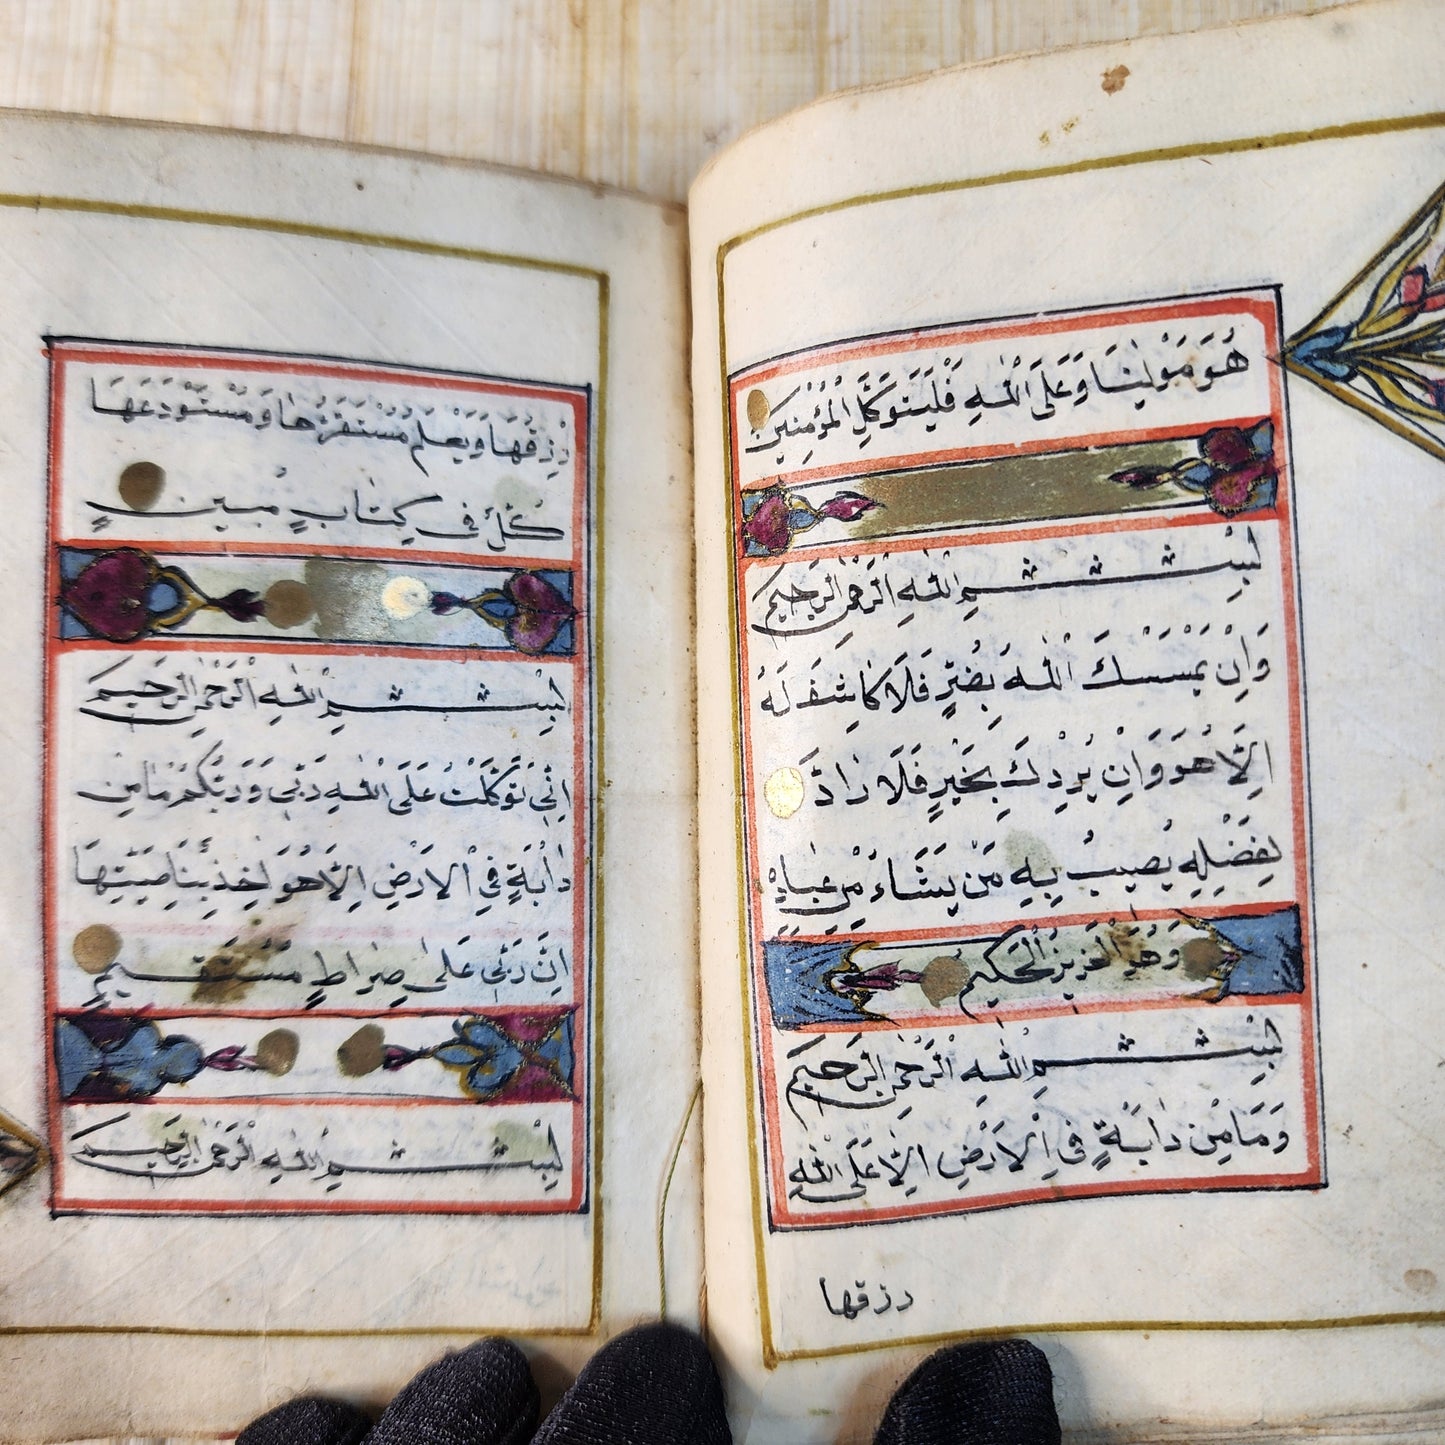 هُوَ مَوْلٰينَا وَعَلَى اللّٰهِ فَلْيَتَوَكَّلِ الْمُؤْمِنِينَ
بِسْمِ اللّٰهِ الرَّحْمٰنِ الرَّحِيمِ
وَاِنْ يَمْسَسْكَ اللّٰهُ بِضُرٍّ فَلَا كَاشِفَ لَهُ
اِلَّا هُوَ وَاِنْ يُرِدْكَ بِخَيْرٍ فَلَا رَادَّ
لِفَضْلِهِ يُصِيبُ بِهِ مَنْ يَشَاءُ مِنْ عِبَادِهِ
وَهُوَ الْعَزِيزُ الْحَكِيمُ
بِسْمِ اللّٰهِ الرَّحْمٰنِ الرَّحِيمِ
وَمَا مِنْ دَابَّةٍ فِى الْاَرْضِ اِلَّا عَلَى اللّٰهِ
رزقها
رِزْقُهَا وَيَعْلَمُ مُسْتَقَرَّهَا وَمُسْتَوْدَعَهَا
كُلٌّ فِى كِتَابٍ مُبِينٍ
بِسْمِ اللّٰهِ الرَّحْمٰنِ الرَّحِيمِ
اِنِّى تَوَكَّلْتُ عَلَى اللّٰهِ رَبِّى وَرَبِّكُمْ مَا مِنْ
دَابَّةٍ فِى الْاَرْضِ اِلَّا هُوَ اٰخِذٌ بِنَاصِيَتِهَا
اِنَّ رَبِّى عَلٰى صِرَاطٍ مُسْتَقِيمٍ
بِسْمِ اللّٰهِ الرَّحْمٰنِ الرَّحِيمِ